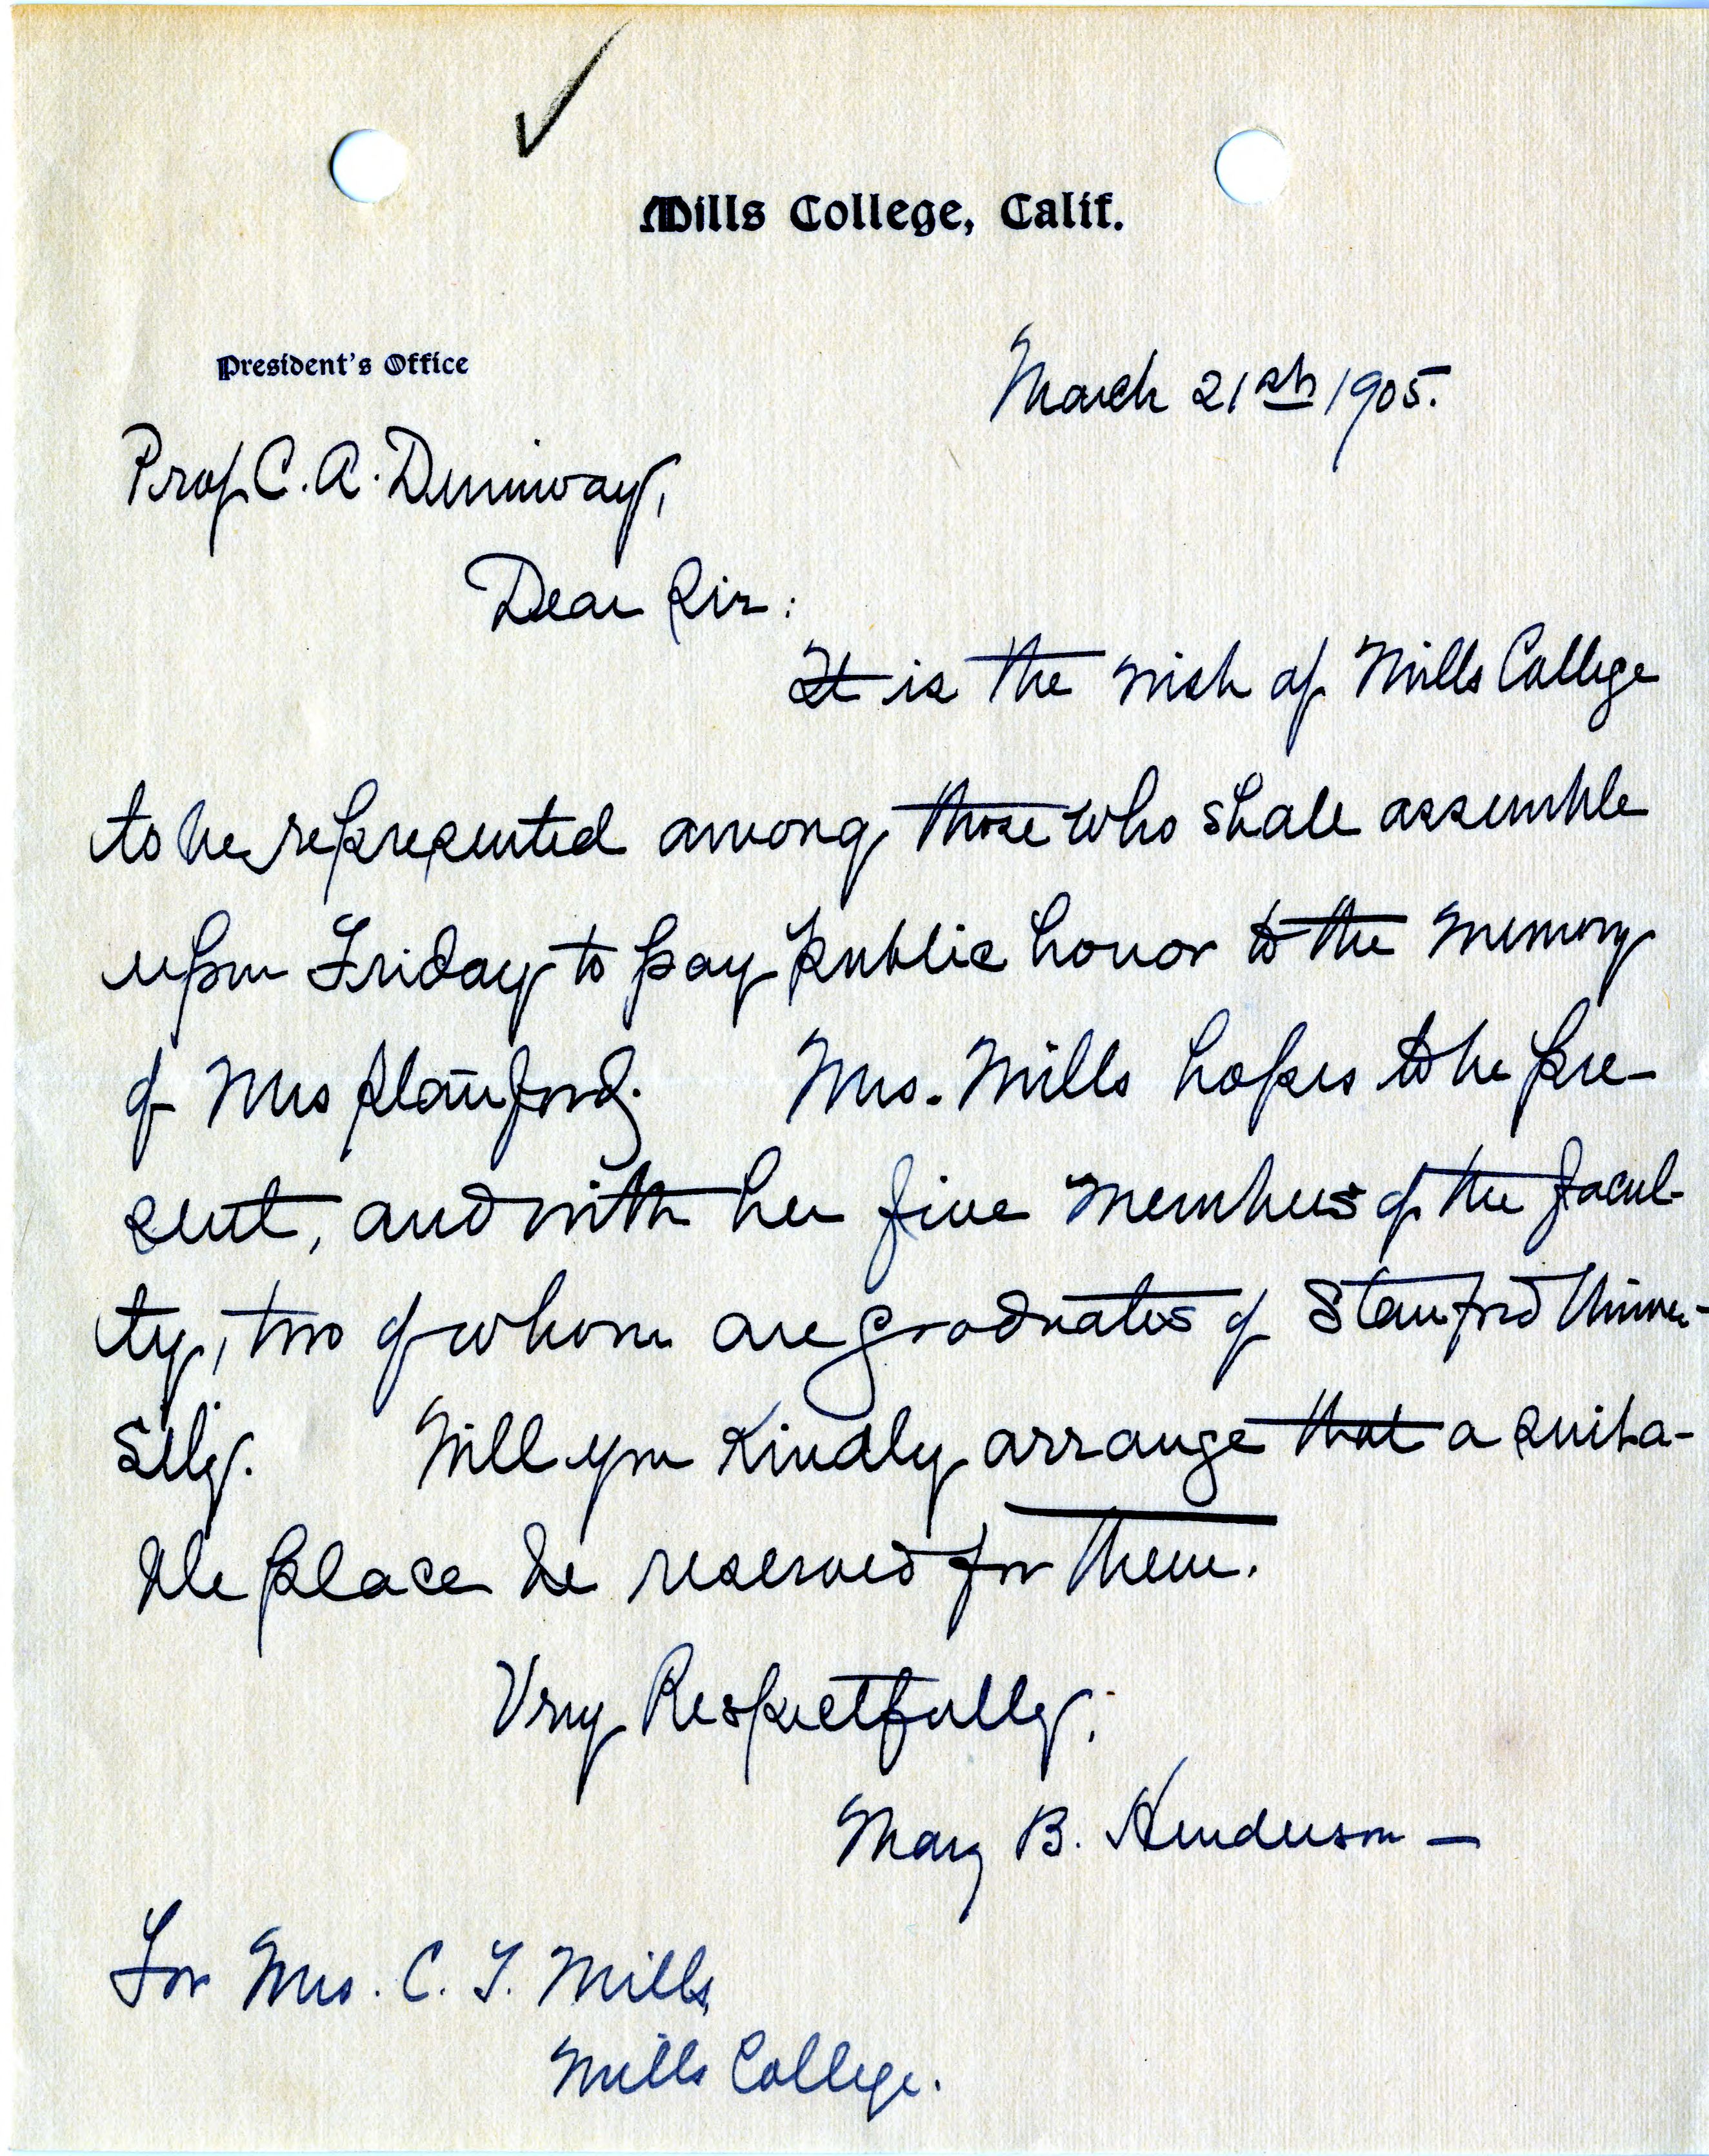 Mills College, Calif.
President's Office
March 21st 1905.
Prof C. A. Duniway,
Dear Sir:
It is the wish of Mills College
to be represented among those who shall assemble
upon Friday to pay public honor to the memory
of Mrs Stanford. Mrs. Mills hopes to be pre-
sent, and with her five members of the facul-
ty, two of whom are graduates of Stanford Univer-
sity. Will you kindly arrange that a suita-
ble place be reserved for them.
Very Respectfully,
Mary B. Henderson —
For Mrs. C. T. Mills,
Mills College.